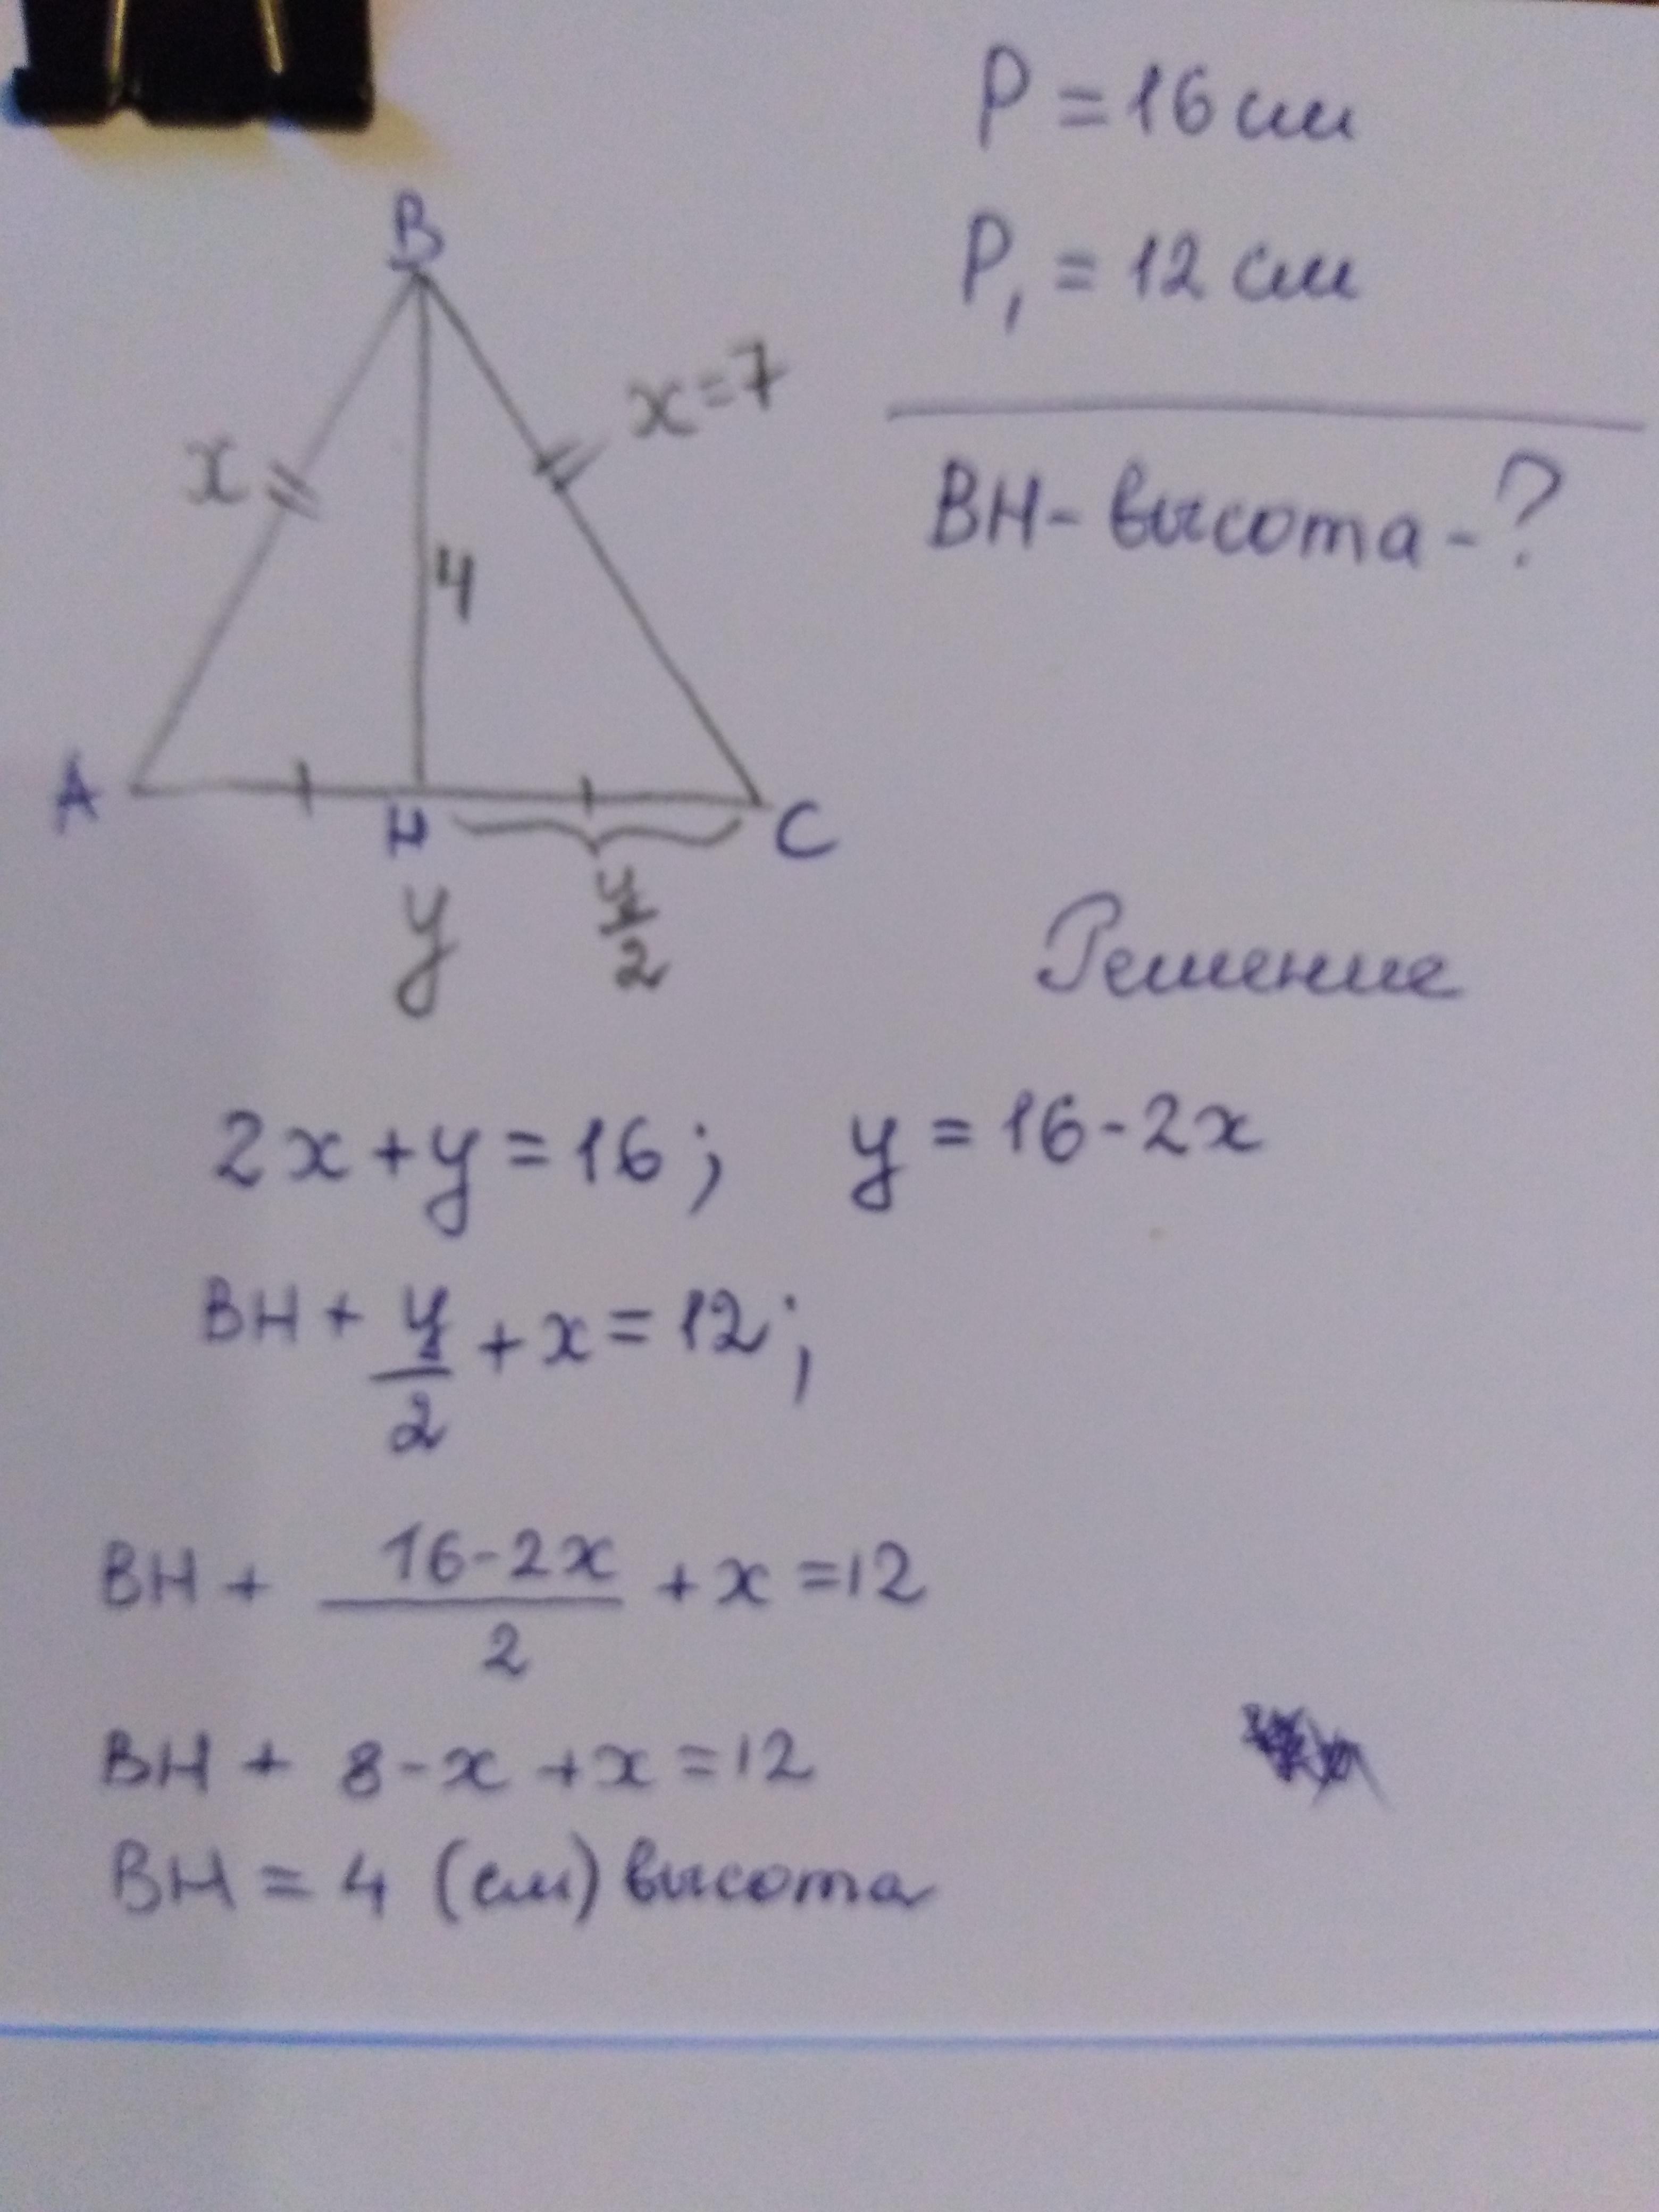 P = 16 см
P₁ = 12 см
BH - высота - ?
B
x
x=7
4
A
H
C
y
y/2
Решение
2x + y = 16; y = 16 - 2x
BH + y/2 + x = 12;
BH + (16-2x)/2 + x = 12
BH + 8 - x + x = 12
BH = 4 (см) высота